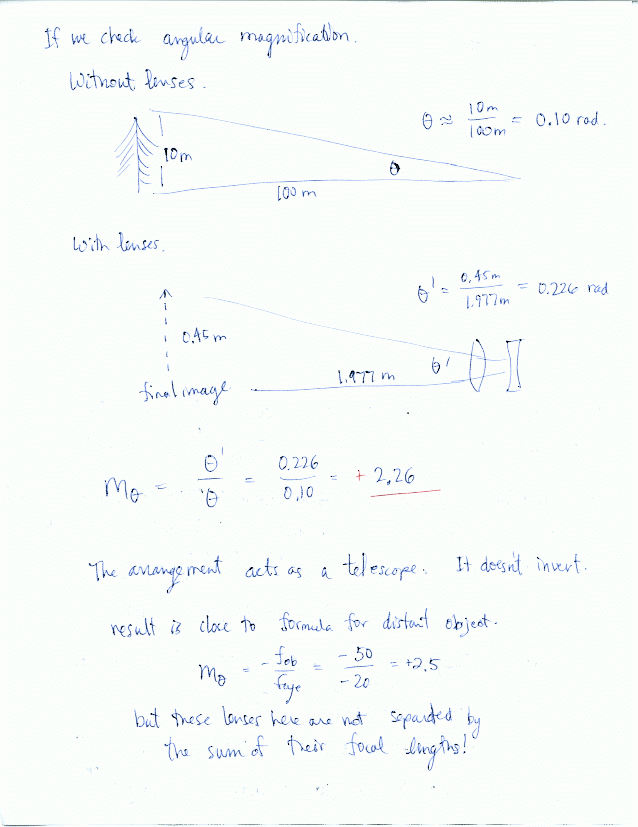 If we check angular magnification.
Without lenses.
θ ≈ 10m / 100m = 0.10 rad.
10m
θ
100 m
With lenses.
θ' = 0.45m / 1.977m = 0.226 rad
0.45 m
θ'
1.977 m
final image
Mθ = θ' / θ = 0.226 / 0.10 = + 2.26
The arrangement acts as a telescope. It doesn't invert.
result is close to formula for distant object.
Mθ = - fob / feye = - 50 / - 20 = +2.5
but these lenses here are not separated by
the sum of their focal lengths!